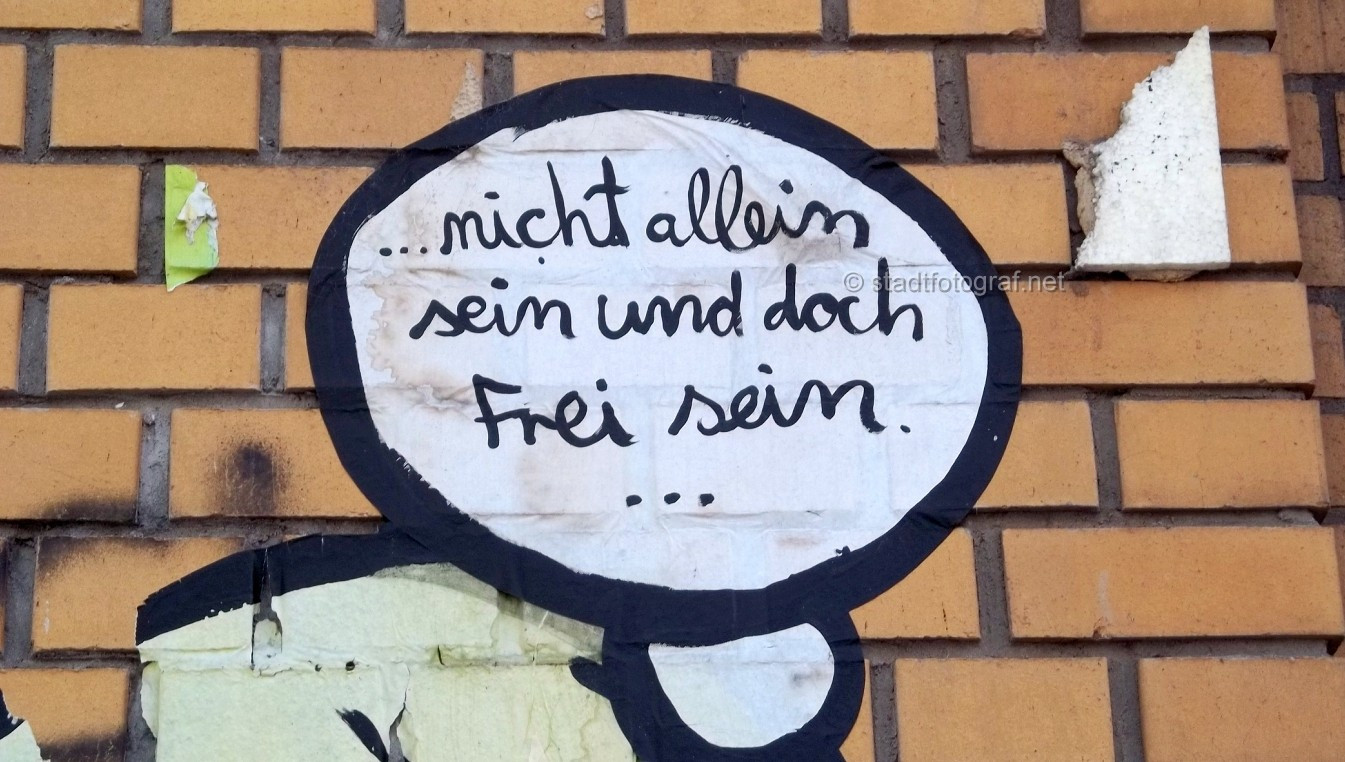 ...nicht allein
© stadtfotograf.net
sein und doch
Frei sein.
...